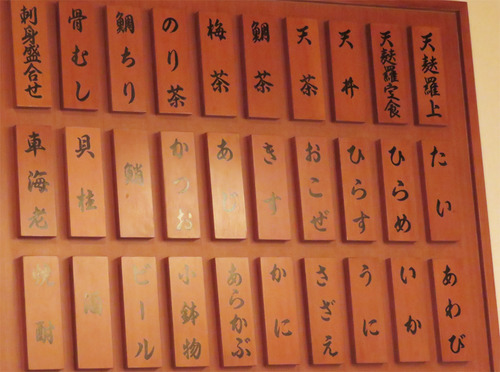 天麩羅上
天麩羅定食
天丼
天茶
鯛茶
梅茶
のり茶
鯛ちり
骨むし
刺身盛合せ
たい
ひらめ
ひらす
おこぜ
きす
あじ
かつお
鮹
貝柱
車海老
あわび
いか
うに
さざえ
かに
あらかぶ
小鉢物
ビール
酒
焼酎